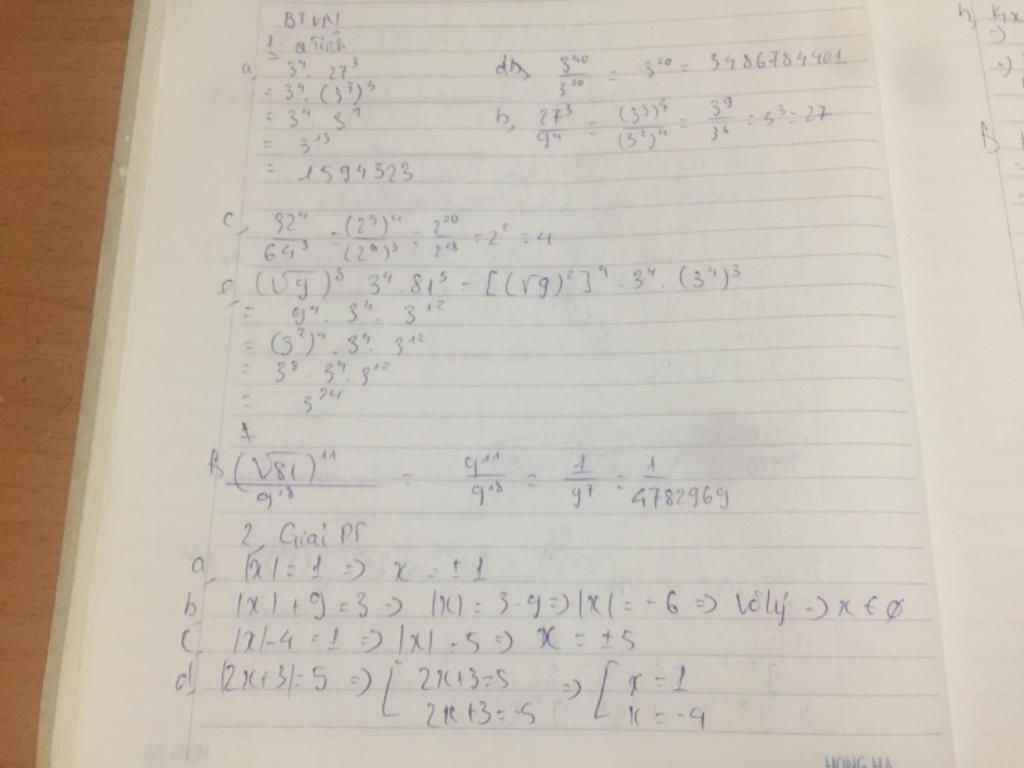 BTVN
1 Tính
a, 3⁴ . 27³
= 3⁴ . (3³)³
= 3⁴ . 3⁹
= 3¹³
= 1594323
d, 3⁴⁰/3²⁰ = 3²⁰ = 3486784401
b, 27³/9⁴ = (3³)³/(3²)⁴ = 3⁹/3⁶ = 3³ = 27
c, 32⁴/64³ = (2⁵)⁴/(2⁶)³ = 2²⁰/2¹⁸ = 2² = 4
e, (√9)⁸ . 3⁴ . 81³ = [(√9)²]⁴ . 3⁴ . (3⁴)³
= 9⁴ . 3⁴ . 3¹²
= (3²)⁴ . 3⁴ . 3¹²
= 3⁸ . 3⁴ . 3¹²
= 3²⁴
f, (√81)¹¹/9¹⁸ = 9¹¹/9¹⁸ = 1/9⁷ = 1/4782969
2, Giải PT
a, |x| = 1 => x = ±1
b, |x| + 9 = 3 => |x| = 3-9 => |x| = -6 => Vô lý => x ∈ ∅
c, |x| - 4 = 1 => |x| = 5 => x = ±5
d, |2x+3| = 5 => [ 2x+3=5 => [ x = 1
2x+3=-5 x = -4
HONG HA